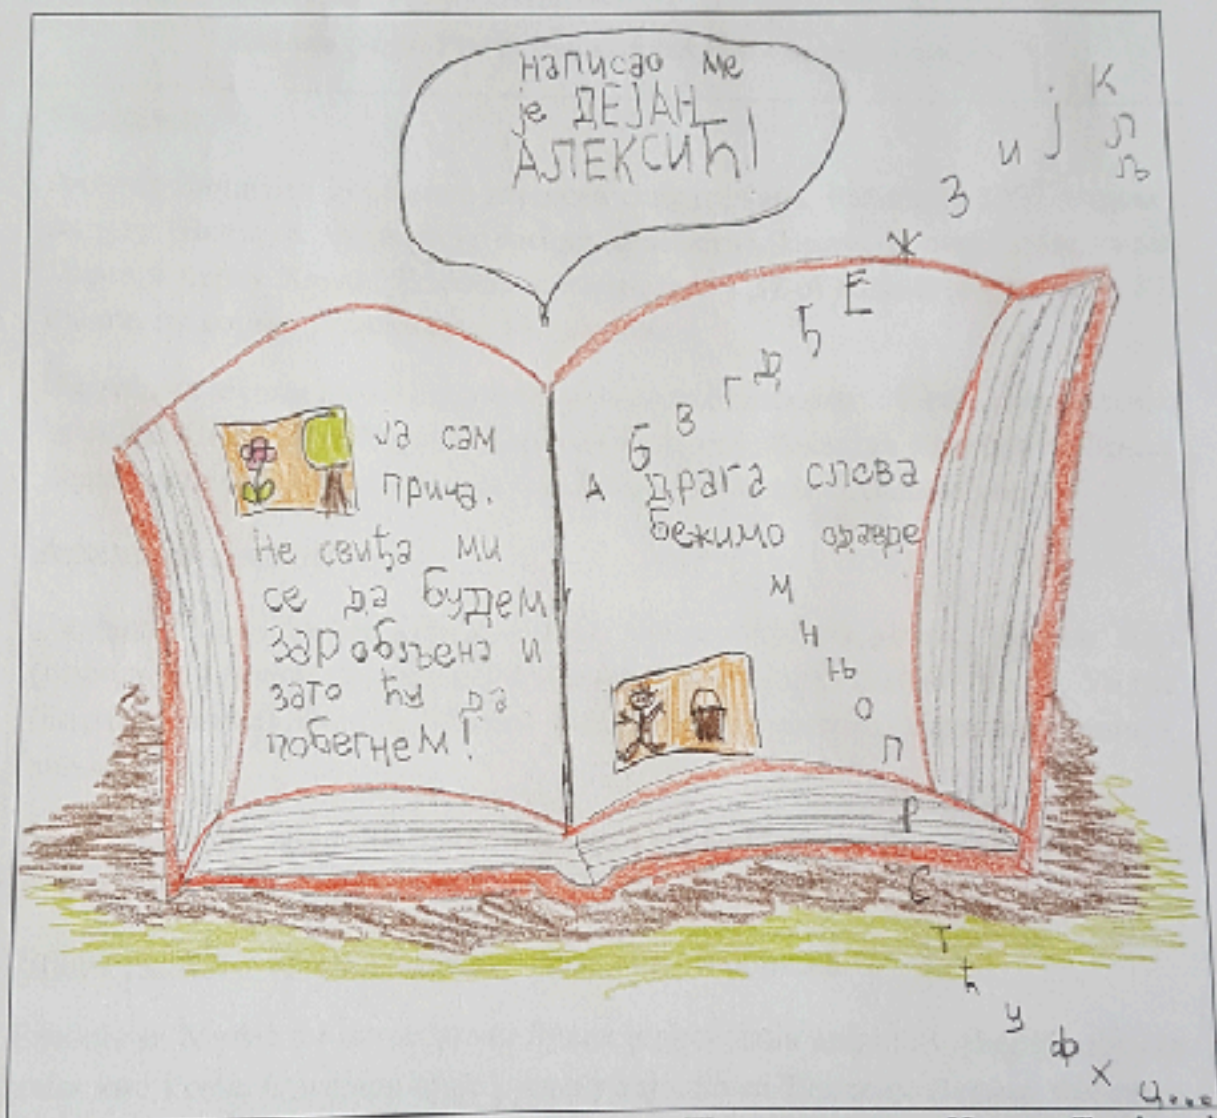 написао ме
је ДЕЈАН
АЛЕКСИЋ!
ја сам
прича.
Не свиђа ми
се да будем
заробљена и
зато ћу да
побегнем!
А Б В Г Д Ђ Е Ж З И Ј К Л Љ
драга слова
бежимо одавде
М Н Њ О П Р С Т Ћ У Ф Х Ц...